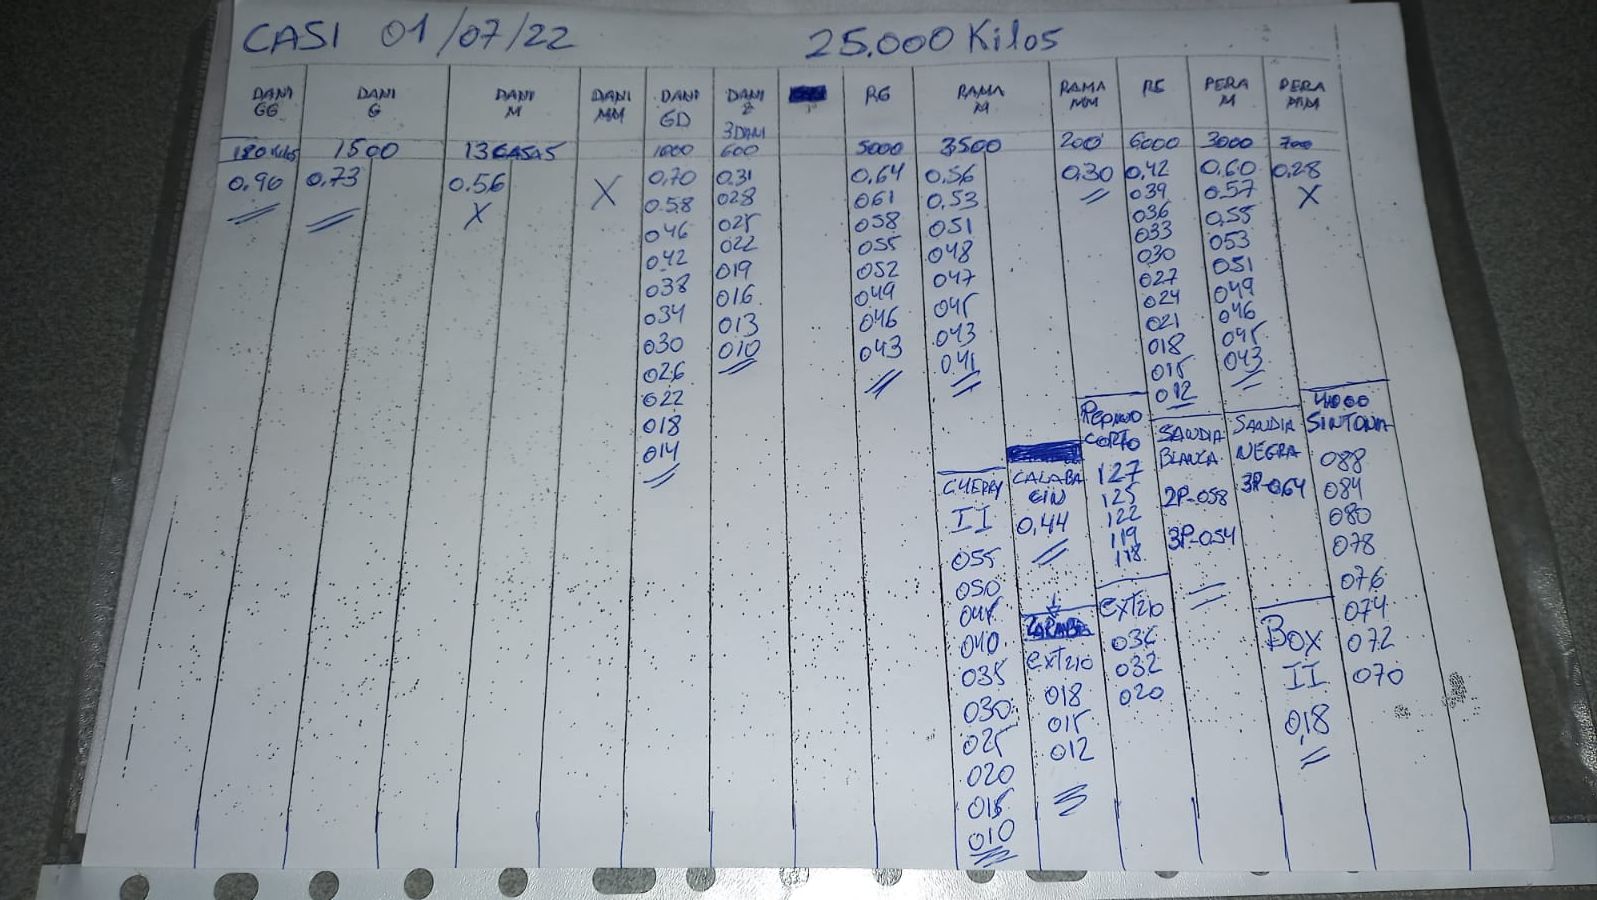 CASI 01/07/22 25.000 Kilos
DANI GG
180 Kilos
0,96
DANI G
1500
0,73
DANI M
136 CASAS
0.56
X
DANI MM
X
DANI GD
1000
0,70
0.58
046
042
038
034
030
026
022
018
014
DANI
3DANI
600
0,31
028
025
022
019
016
013
010
RG
5000
0,64
061
058
055
052
049
046
043
RAMA M
3500
0,56
0,53
051
048
047
045
043
041
CHERRY
II
055
050
045
040
035
030
025
020
015
010
RAMA MM
200
0,30
CALABA
CIN
0,44
extrio
018
015
012
RE
6000
0,42
039
036
033
030
027
024
021
018
015
012
PEPINO
CORTO
127
125
122
119
118
extrio
036
032
020
PERA M
3000
0,60
0.57
0,55
053
051
049
046
045
043
SANDIA
BLANCA
2P-058
3P-054
PERA MM
700
0,28
X
SANDIA
NEGRA
3P-064
Box
II
0,18
4000
SINTONIA
088
084
080
078
076
074
072
070